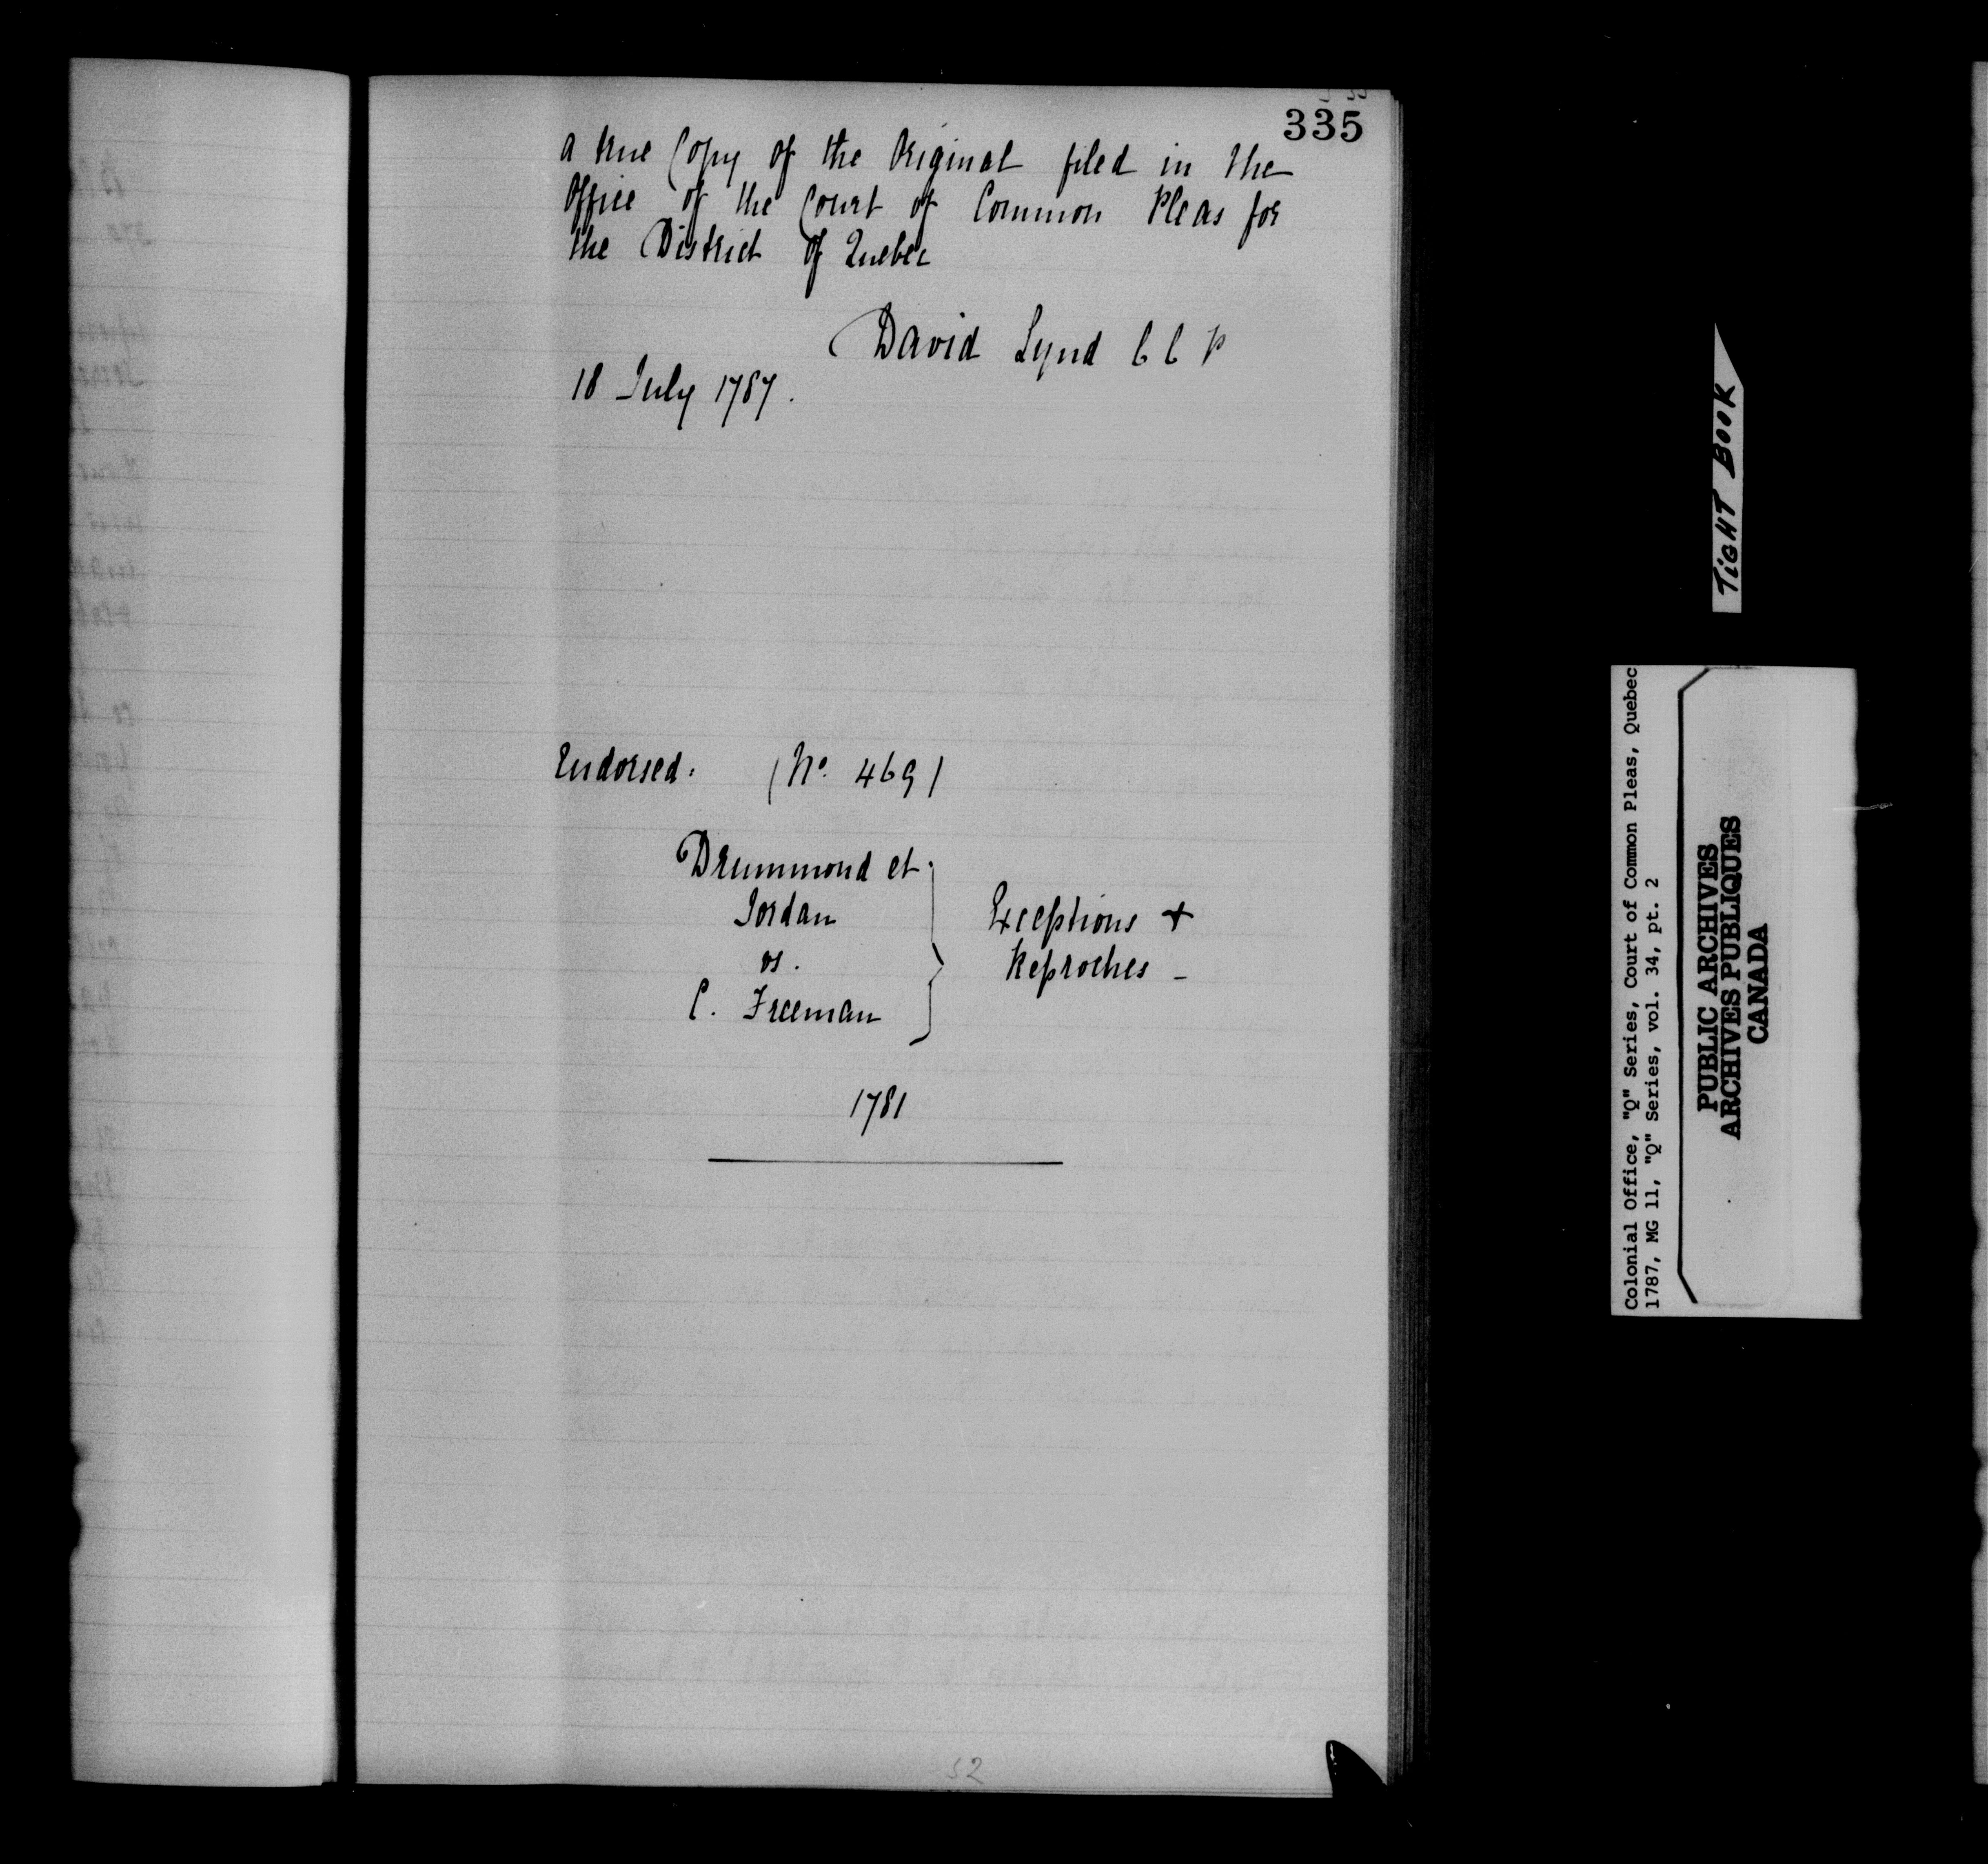 335
a true Copy of the Original filed in the
Office of the Court of Common Pleas for
the District of Quebec
David Lynd C C P
18 July 1787.
Endorsed. (No. 469)
Drummond et
Jordan
vs.
C. Freeman
Exceptions +
Reproches -
1781
52
TiGHT BOOK
Colonial Office, "Q" Series, Court of Common Pleas, Quebec
1787, MG 11, "Q" Series, vol. 34, pt. 2
PUBLIC ARCHIVES
ARCHIVES PUBLIQUES
CANADA